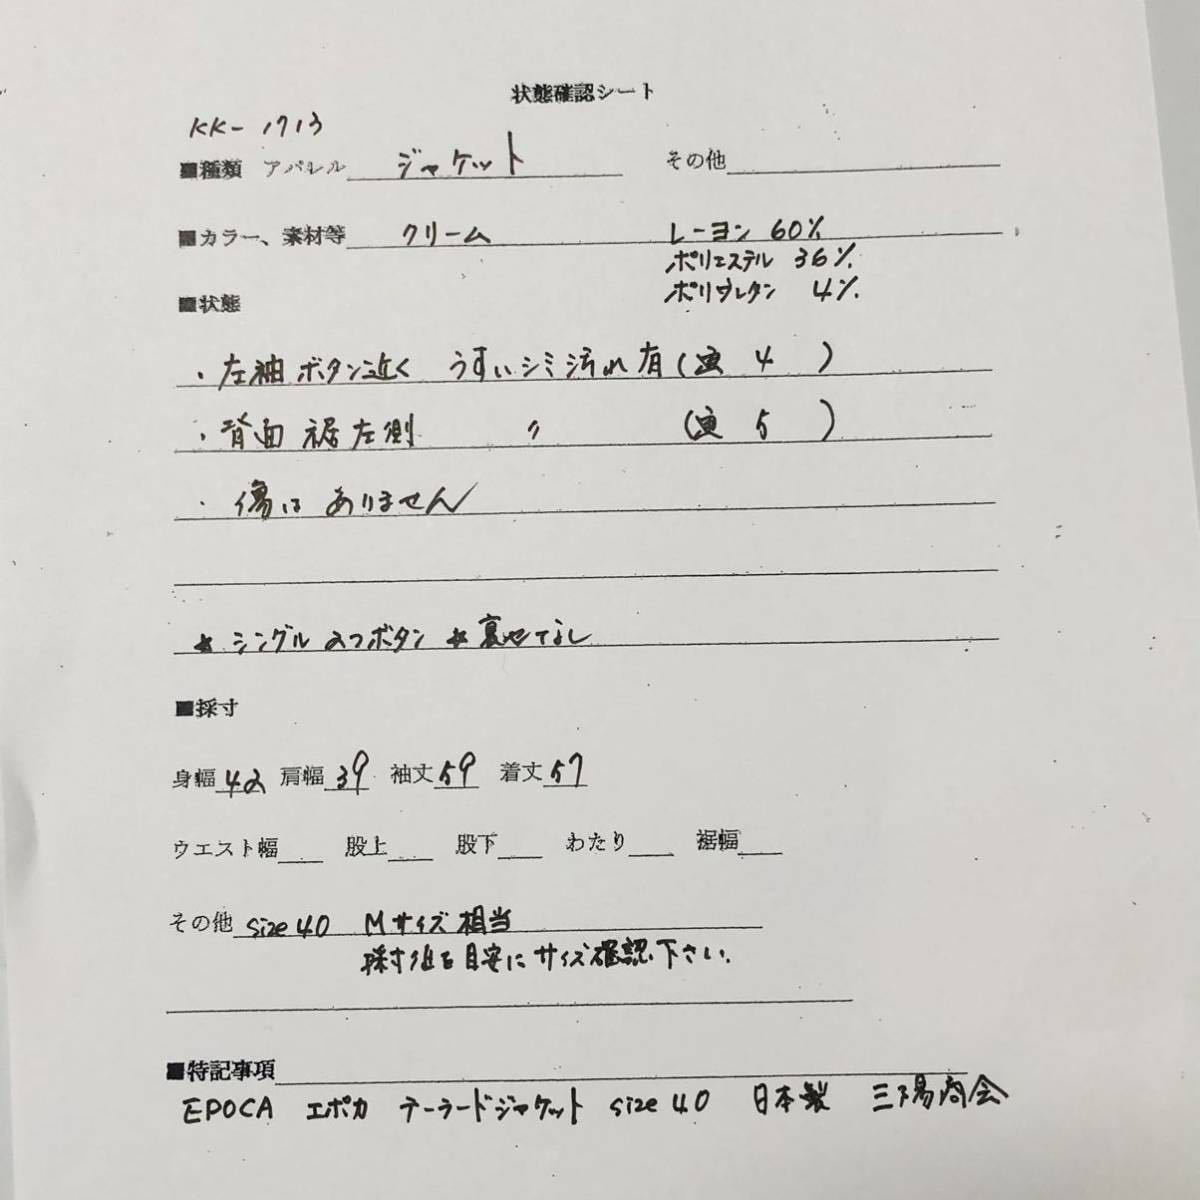 状態確認シート
KK-1713
■種類 アパレル ジャケット その他
■カラー、素材等 クリーム レーヨン 60%
ポリエステル 36%
ポリウレタン 4%
■状態
・左袖ボタン近く うすいシミ汚れ有(画 4 )
・背面 裾左側 〃 (画 5 )
・傷は ありません
☆シングル2つボタン ☆裏地なし
■採寸
身幅42 肩幅39 袖丈59 着丈57
ウエスト幅 股上 股下 わたり 裾幅
その他 size 40 Mサイズ相当
採寸値を目安にサイズ確認下さい.
■特記事項
EPOCA エポカ テーラードジャケット size 40 日本製 三陽商会